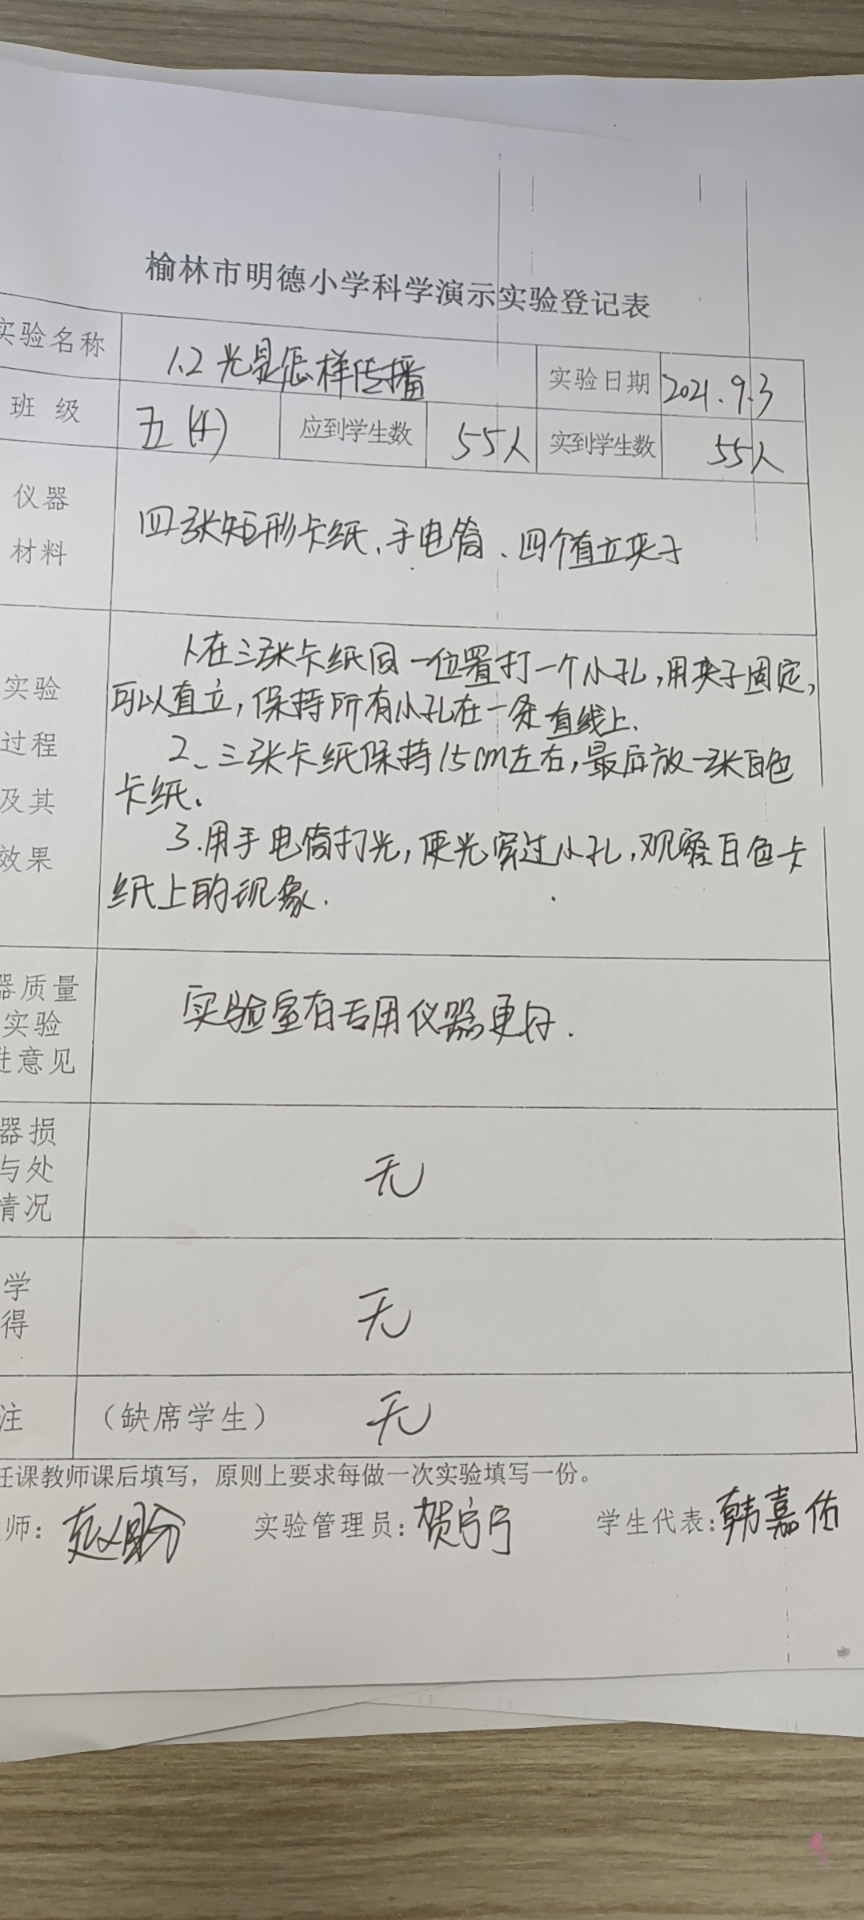 榆林市明德小学科学演示实验登记表
实验名称 1.2光是怎样传播 实验日期 2021.9.3
班级 五(4) 应到学生数 55人 实到学生数 55人
仪器
材料
四张矩形卡纸、手电筒、四个直立夹子
实验
过程
及其
效果
1.在三张卡纸同一位置打一个小孔,用夹子固定,
可以直立,保持所有小孔在一条直线上.
2、三张卡纸保持15cm左右,最后放一张白色
卡纸.
3.用手电筒打光,使光穿过小孔,观察白色卡
纸上的现象.
器质量
实验
进意见
实验室有专用仪器更好.
器损
与处
情况
无
学
得
无
注 (缺席学生) 无
任课教师课后填写,原则上要求每做一次实验填写一份。
师: 赵盼 实验管理员: 贺宁宁 学生代表: 韩嘉佑